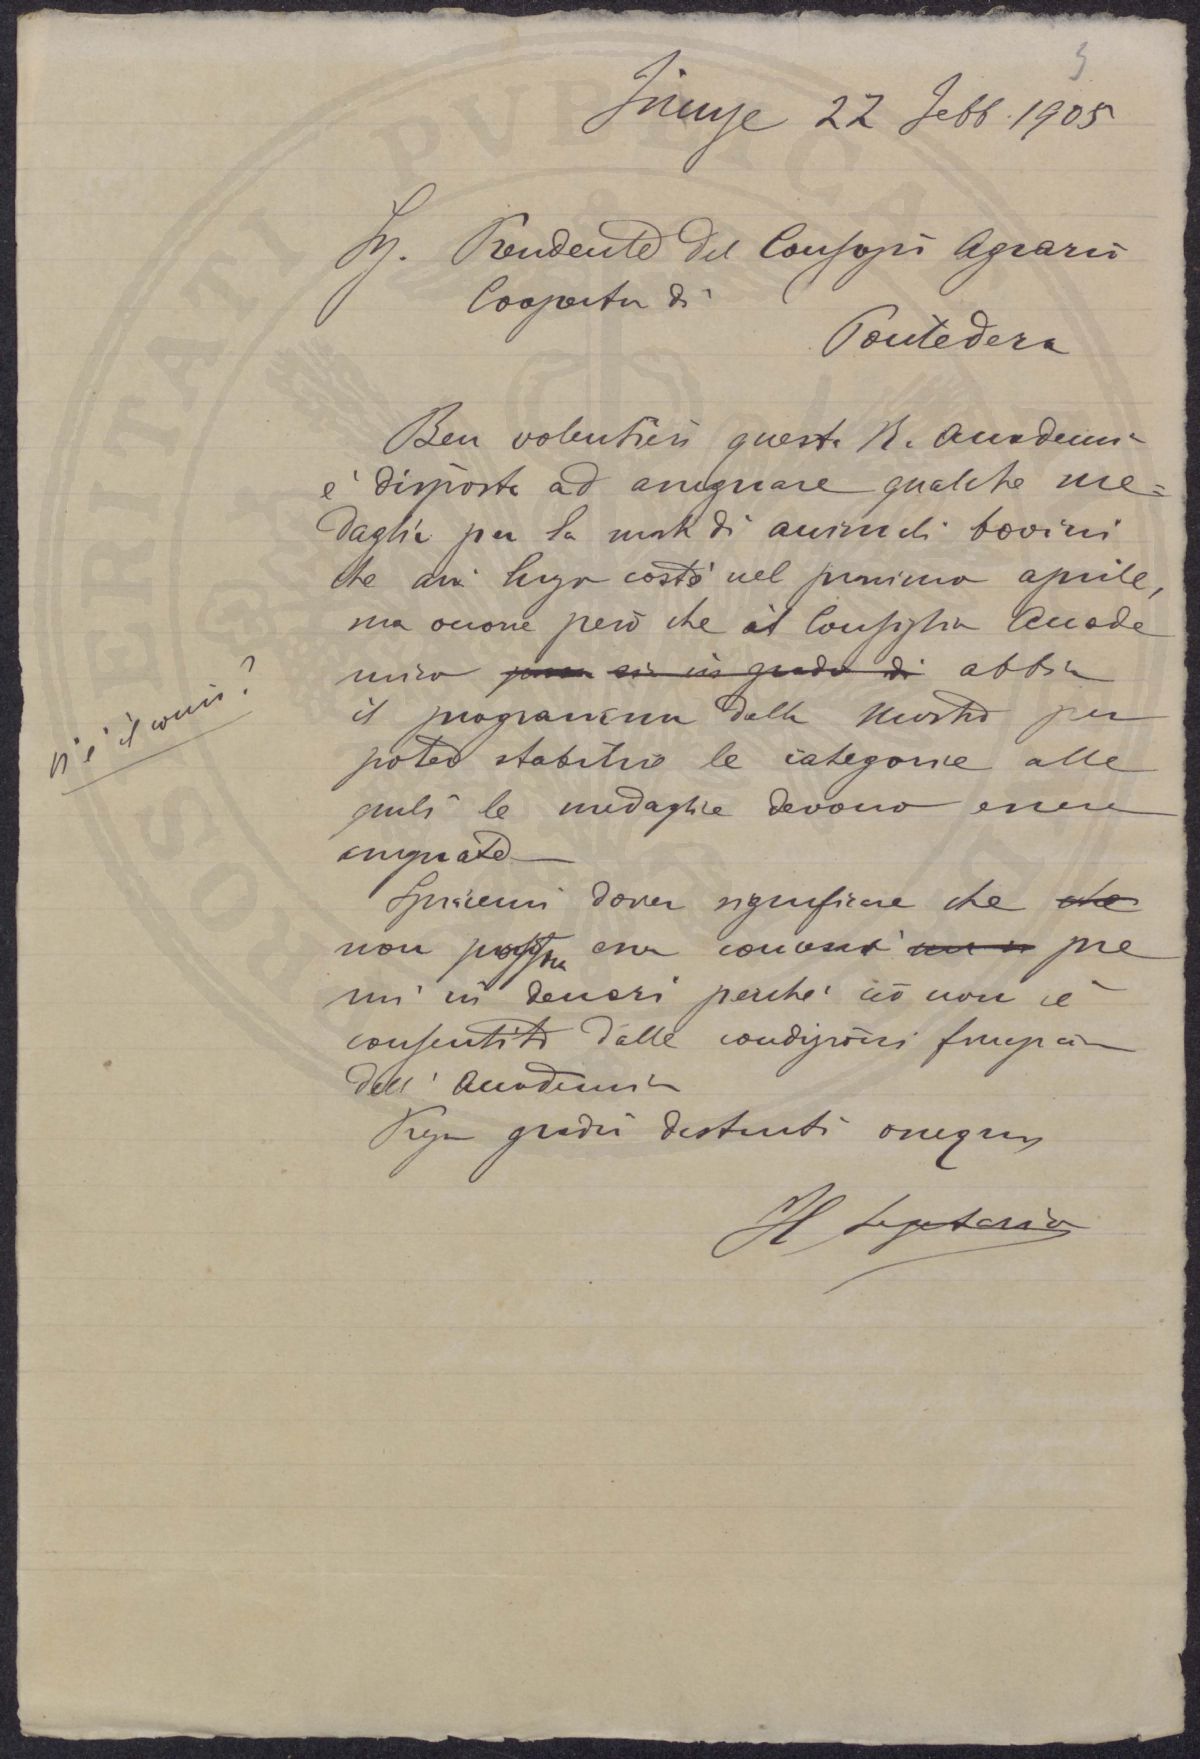 3
Firenze 22 Febb. 1905
Sig. Presidente del Consorzio Agrario
Cooperativo di
Pontedera
Ben volentieri questa R. Accademia
è disposta ad assegnare qualche me=
daglia per la mostra di animali bovini
che avrà luogo costà nel prossimo aprile,
ma occorre però che il Consiglio Accade
mico possa sia in grado di abbia
il programma della Mostra per
poter stabilire le categorie alle
quali le medaglie devono essere
assegnate
Spiacemi dover significare che che
non possa essa concessi pre
mi in denari perché ciò non è
consentito dalle condizioni finanziarie
dell'Accademia
Prego gradire distinti ossequi
Il Segretario
V'è il conio?
SOCIETATI PUBLICAE